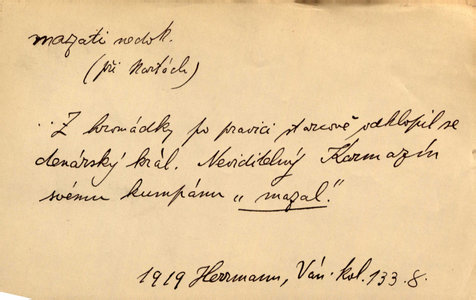 mazati nedok.
(při kartách)
„Z hromádky po pravici starcově odklopil se
denárský král. Neviditelný Karmazín
svému kumpánu „mazal."
1919 Herrmann, Ván. kol. 133.8.